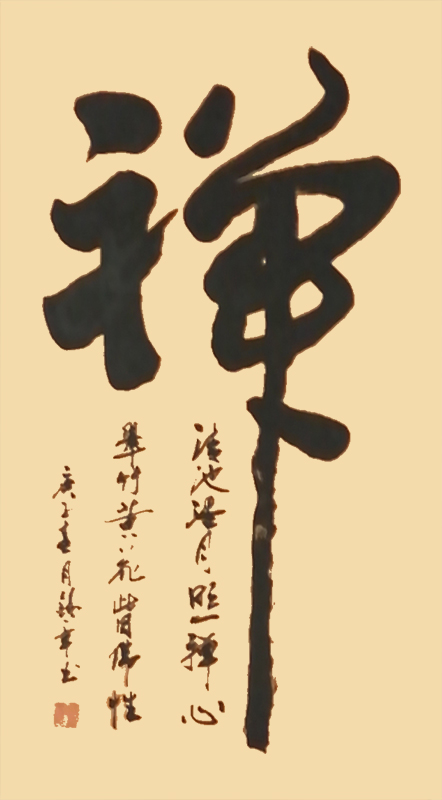 禅
清池皓月照禅心
翠竹黄花皆佛性
庚子春月 书